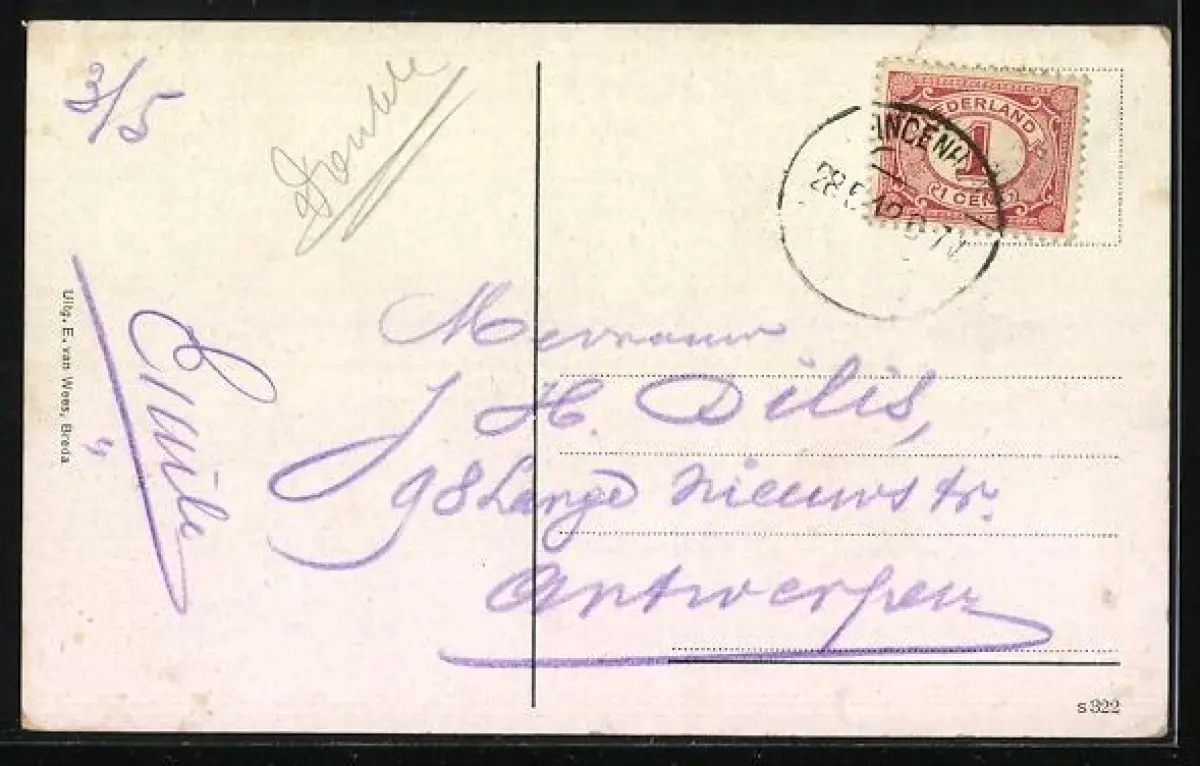 3/5
Double
NEDERLAND
1
1 CENT
28.5.12.6-7
Mevrouw
J H. Dilis,
98 Lange Nieuwstr.
Antwerpen
Emile
Uitg. E. van Wees, Breda
s 322